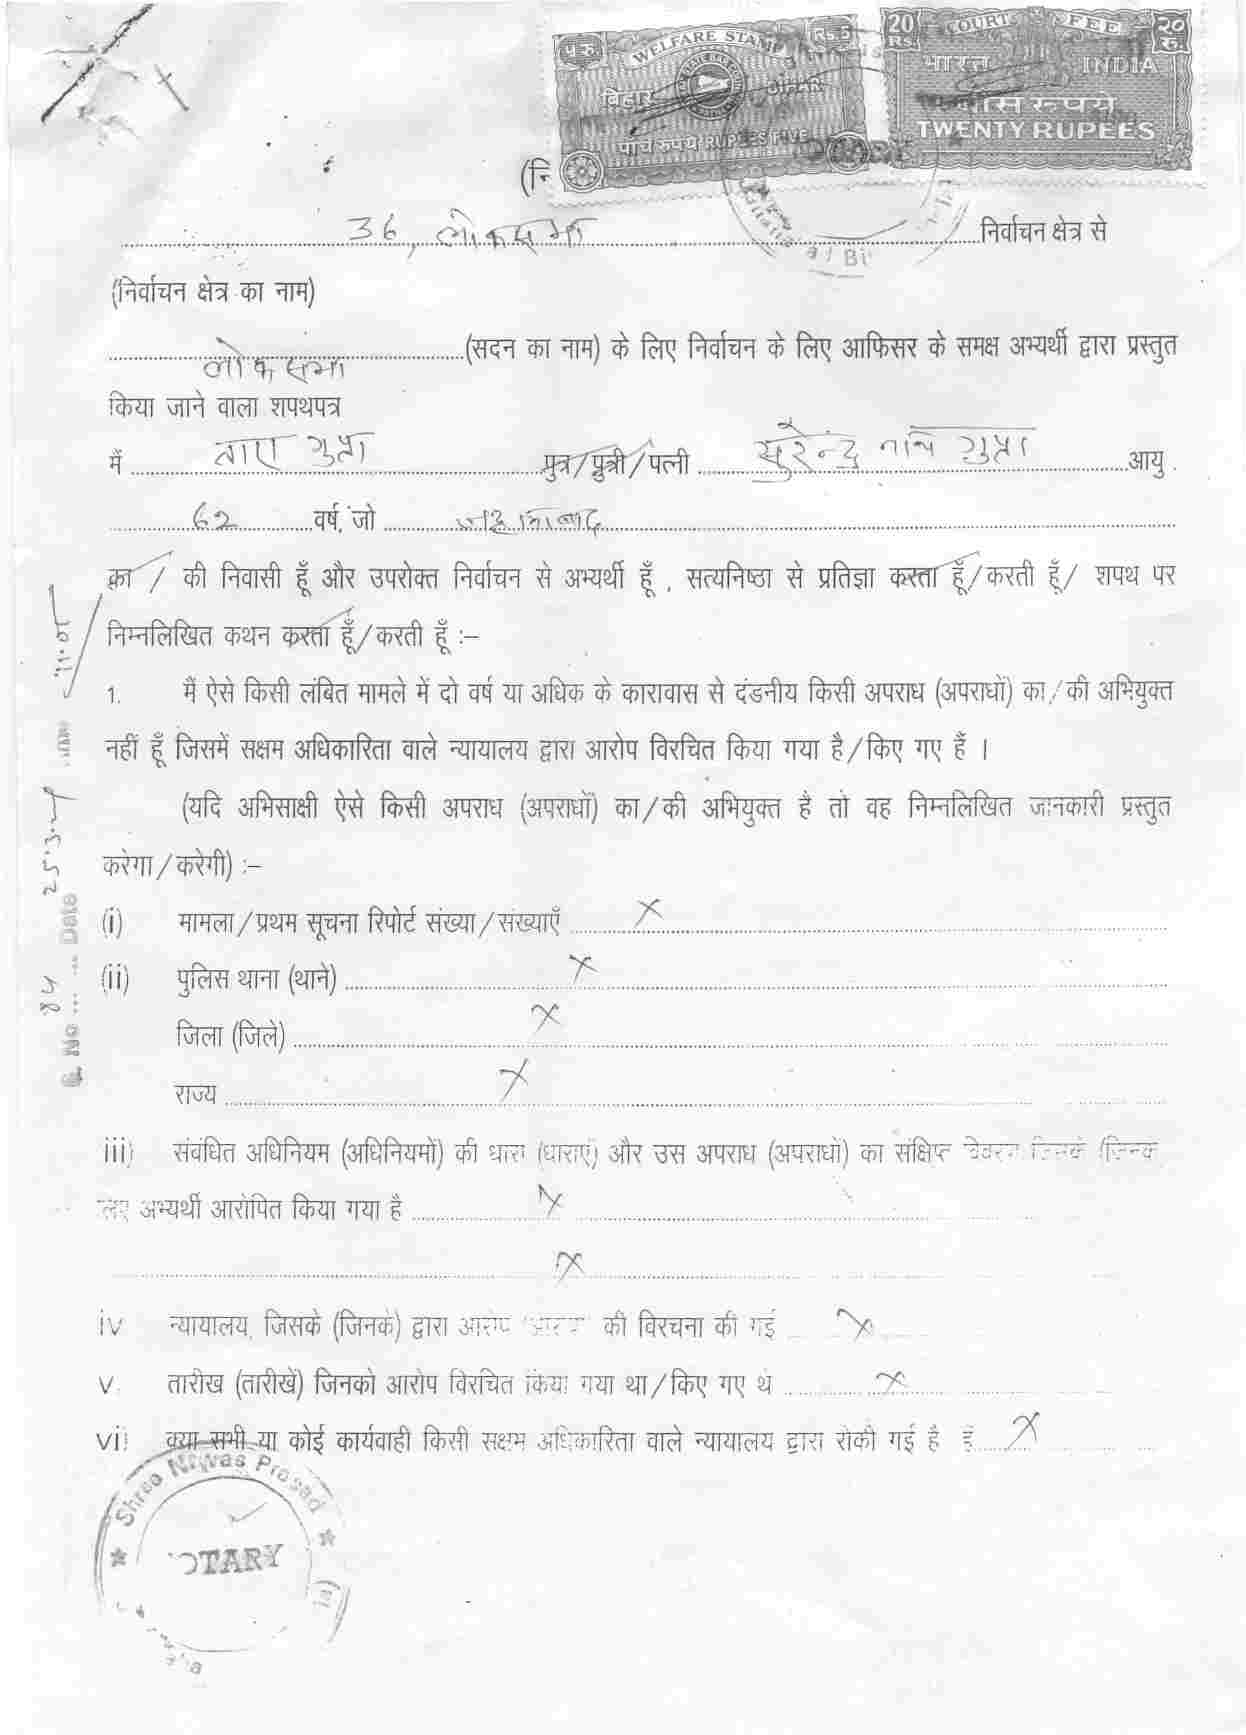 WELFARE STAMP
५ रु. Rs.5
बिहार BIHAR
पांच रुपये RUPEES FIVE
20 Rs. COURT FEE २० रु.
भारत INDIA
बीस रुपये
TWENTY RUPEES
(नि
36, लोकसभा निर्वाचन क्षेत्र से
(निर्वाचन क्षेत्र का नाम)
लोकसभा (सदन का नाम) के लिए निर्वाचन के लिए आफिसर के समक्ष अभ्यर्थी द्वारा प्रस्तुत
किया जाने वाला शपथपत्र
मैं तारा गुप्ता पुत्र/पुत्री/पत्नी सुरेन्द्र नाथ गुप्ता आयु
62 वर्ष, जो जहानाबाद
का / की निवासी हूँ और उपरोक्त निर्वाचन से अभ्यर्थी हूँ, सत्यनिष्ठा से प्रतिज्ञा करता हूँ/करती हूँ/ शपथ पर
निम्नलिखित कथन करता हूँ/करती हूँ :–
1. मैं ऐसे किसी लंबित मामले में दो वर्ष या अधिक के कारावास से दंडनीय किसी अपराध (अपराधों) का/की अभियुक्त
नहीं हूँ जिसमें सक्षम अधिकारिता वाले न्यायालय द्वारा आरोप विरचित किया गया है/किए गए हैं ।
(यदि अभिसाक्षी ऐसे किसी अपराध (अपराधों) का/की अभियुक्त है तो वह निम्नलिखित जानकारी प्रस्तुत
करेगा/करेगी) :–
(i) मामला/प्रथम सूचना रिपोर्ट संख्या/संख्याएँ X
(ii) पुलिस थाना (थाने) X
जिला (जिले) X
राज्य X
iii) संबंधित अधिनियम (अधिनियमों) की धारा (धाराएं) और उस अपराध (अपराधों) का संक्षिप्त विवरण जिसके (जिनके
लिए अभ्यर्थी आरोपित किया गया है X
X
iv न्यायालय, जिसके (जिनके) द्वारा आरोप की विरचना की गई X
v. तारीख (तारीखें) जिनको आरोप विरचित किया गया था/किए गए थे X
vi) क्या सभी या कोई कार्यवाही किसी सक्षम अधिकारिता वाले न्यायालय द्वारा रोकी गई है हैं X
No... 84 ... Date 25.3.
Shree Niwas Prasad
OTARY